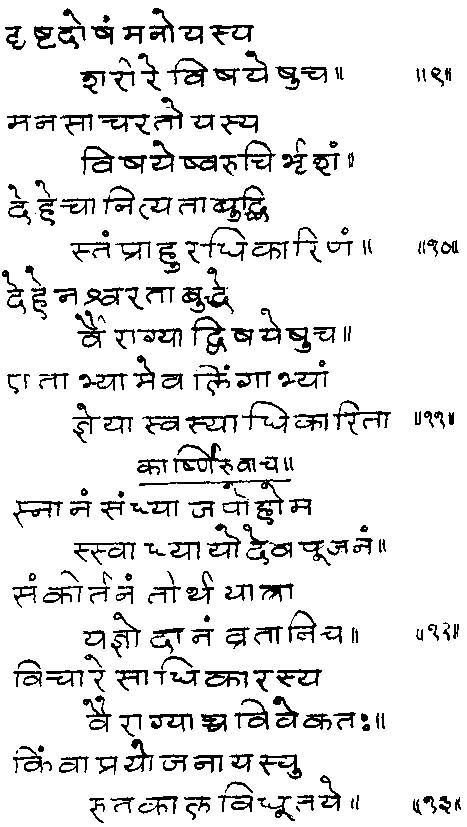 दृष्टदोषंमनोयस्य
शरीरेविषयेषुच॥ ॥९॥
मनसाचरतोयस्य
विषयेष्वरुचिर्भृशं॥
देहेचानित्यताबुद्धि
स्तंप्राहुरधिकारिणं॥ ॥१०॥
देहेनश्वरताबुद्धे
र्वैराग्याद्विषयेषुच॥
एताभ्यामेवलिंगाभ्यां
ज्ञेयास्वस्याधिकारिता ॥११॥
कार्ष्णिरुवाच॥
स्नानंसंध्याजपोहोम
स्स्वाध्यायोदेवपूजनं॥
संकीर्तनंतीर्थयात्रा
यज्ञोदानंव्रतानिच॥ ॥१२॥
विचारेसाधिकारस्य
वैराग्याच्चविवेकतः॥
किंवाप्रयोजनायस्यु
रुतकालविधूतये॥ ॥१३॥